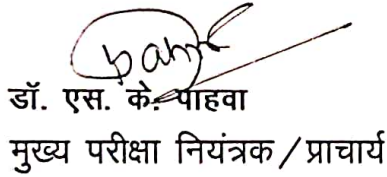 डॉ. एस. के. पाहवा
मुख्य परीक्षा नियंत्रक / प्राचार्य